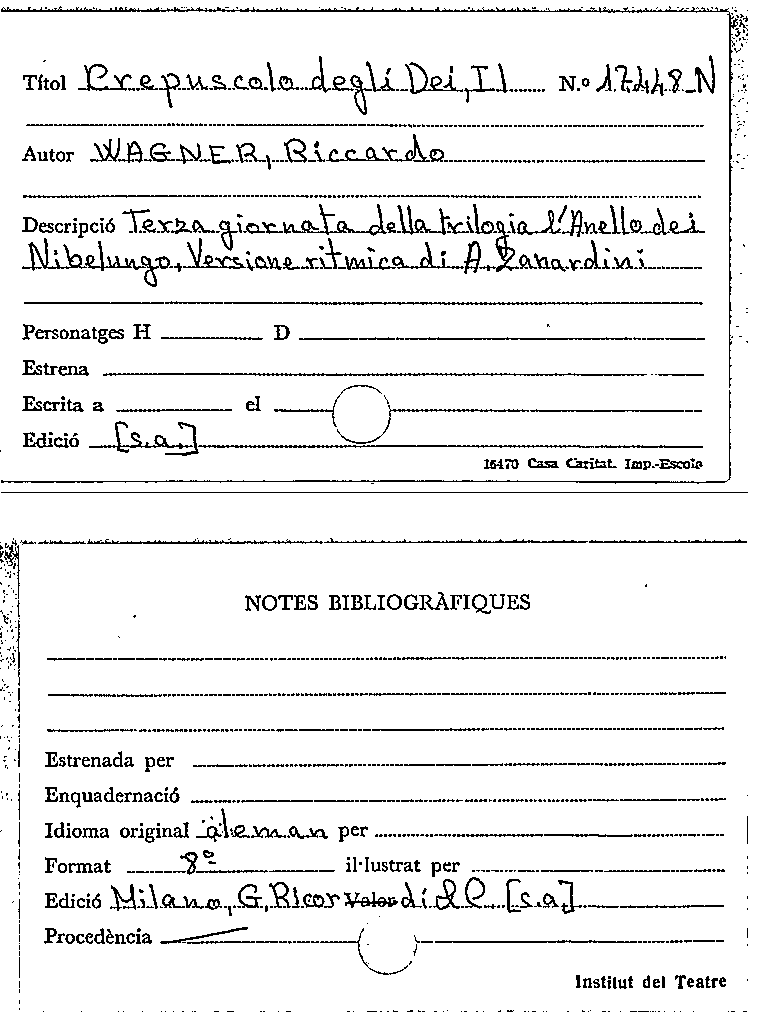 Títol Crepuscolo degli Dei, Il N.º 17448-N
Autor WAGNER, Riccardo
Descripció Terza giornata della trilogia l'Anello dei
Nibelungo, Versione ritmica di A. Zanardini
Personatges H D
Estrena
Escrita a el
Edició [s.a.]
16470 Casa Caritat. Imp.-Escola
NOTES BIBLIOGRÀFIQUES
Estrenada per
Enquadernació
Idioma original aleman per
Format 8º il·lustrat per
Edició Milano, G, Ricor Valor di & C. [s.a]
Procedència
Institut del Teatre